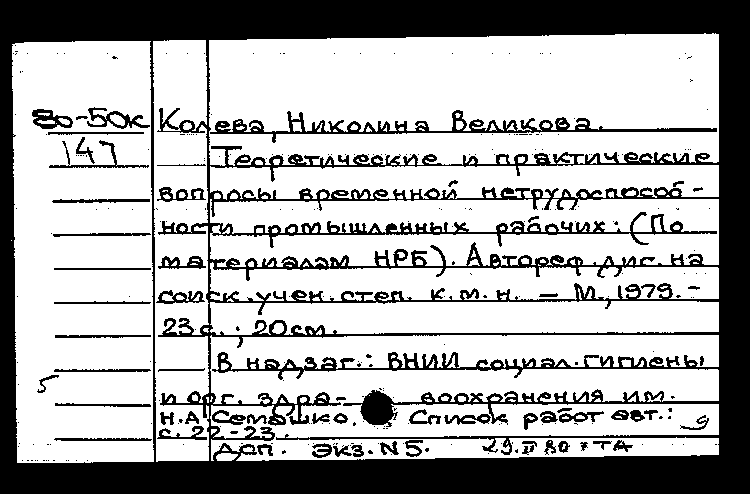 80-50к Колева, Николина Великова.
147 Теоретические и практические
вопросы временной нетрудоспособ-
ности промышленных рабочих: (По
материалам НРБ). Автореф. дис. на
соиск. учен. степ. к.м.н. — М., 1979. -
23 с. ; 20 см.
В надзаг.: ВНИИ социал. гигиены
5
и орг. здра- воохранения им.
Н.А. Семашко. Список работ авт.:
с. 22-23.
9
Доп. экз. N 5. 29.II 80